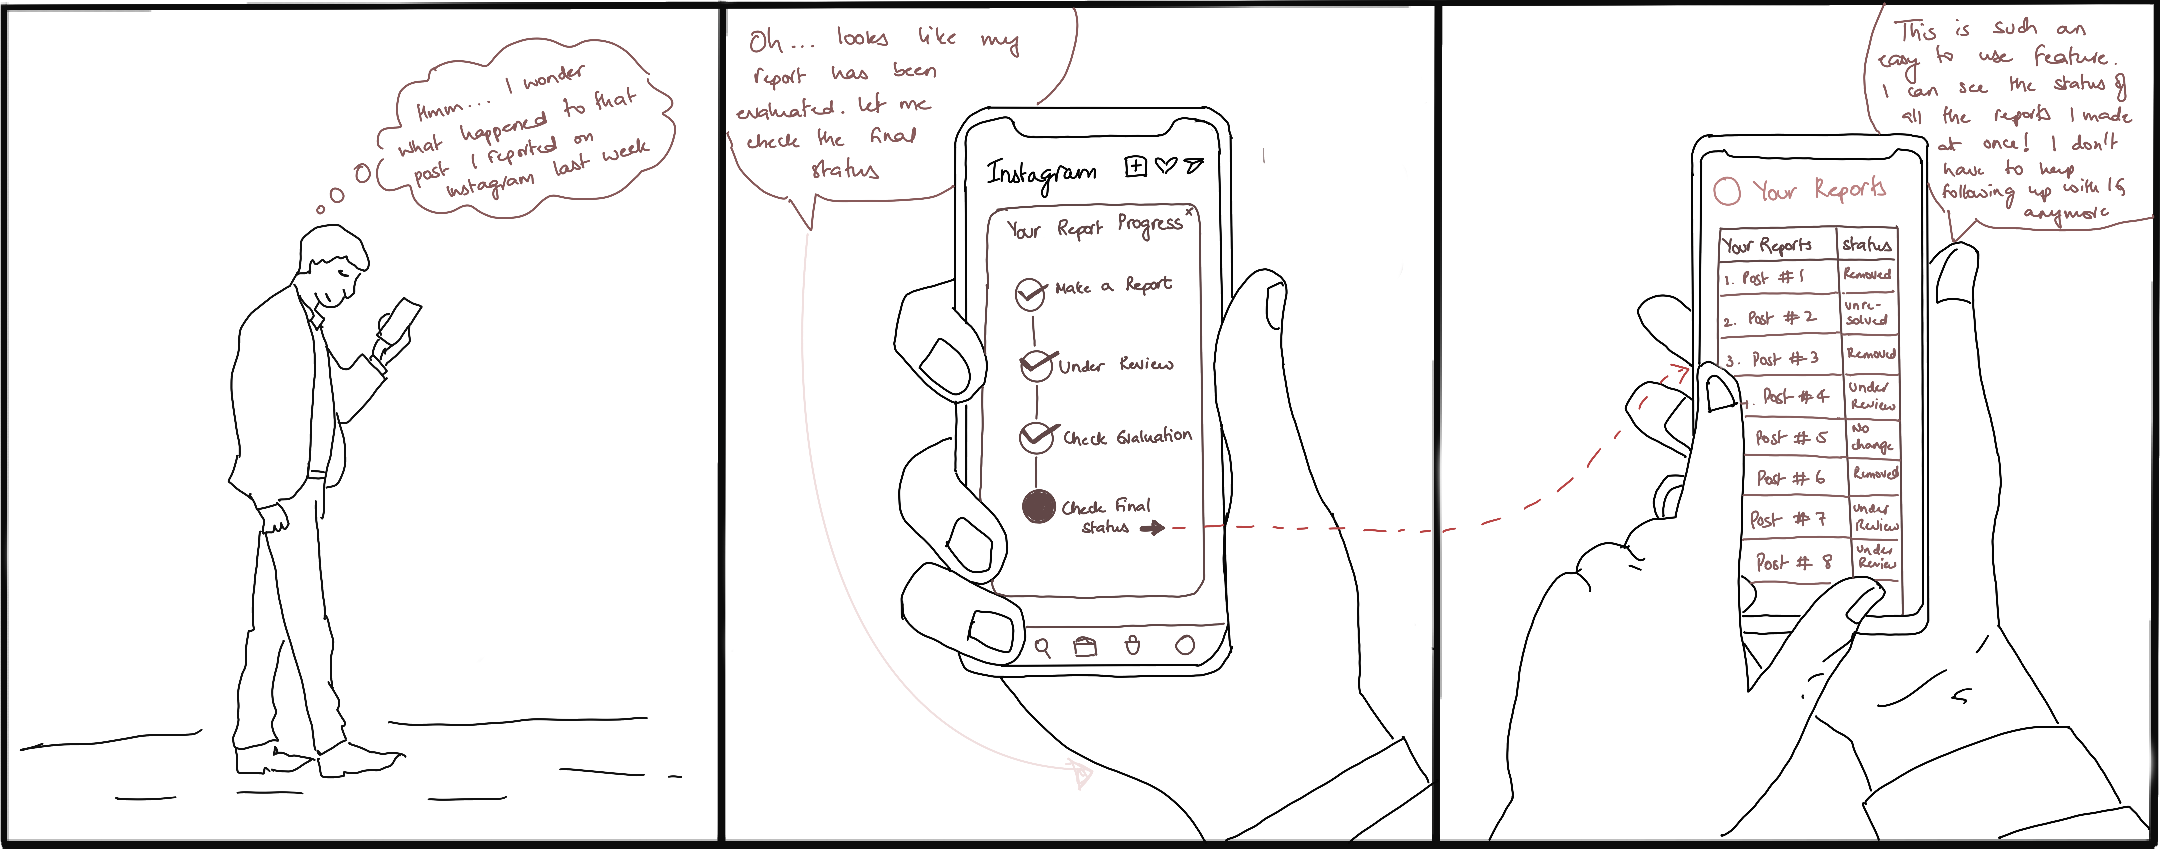 Hmm... I wonder
what happened to that
post I reported on
instagram last week
Oh... looks like my
report has been
evaluated. let me
check the final
status
Instagram
Your Report Progress
x
Make a Report
Under Review
Check Evaluation
Check Final
status
This is such an
easy to use feature.
I can see the status of
all the reports I made
at once! I don't
have to keep
following up with IG
anymore
Your Reports
Your Reports status
1. Post #1 Removed
2. Post #2 unre-
solved
3. Post #3 Removed
4. Post #4 Under
Review
Post #5 No
change
Post #6 Removed
Post #7 Under
Review
Post # 8 Under
Review